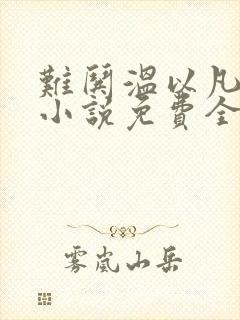 難鬨溫以凡
小說免費全
雾岚山岳